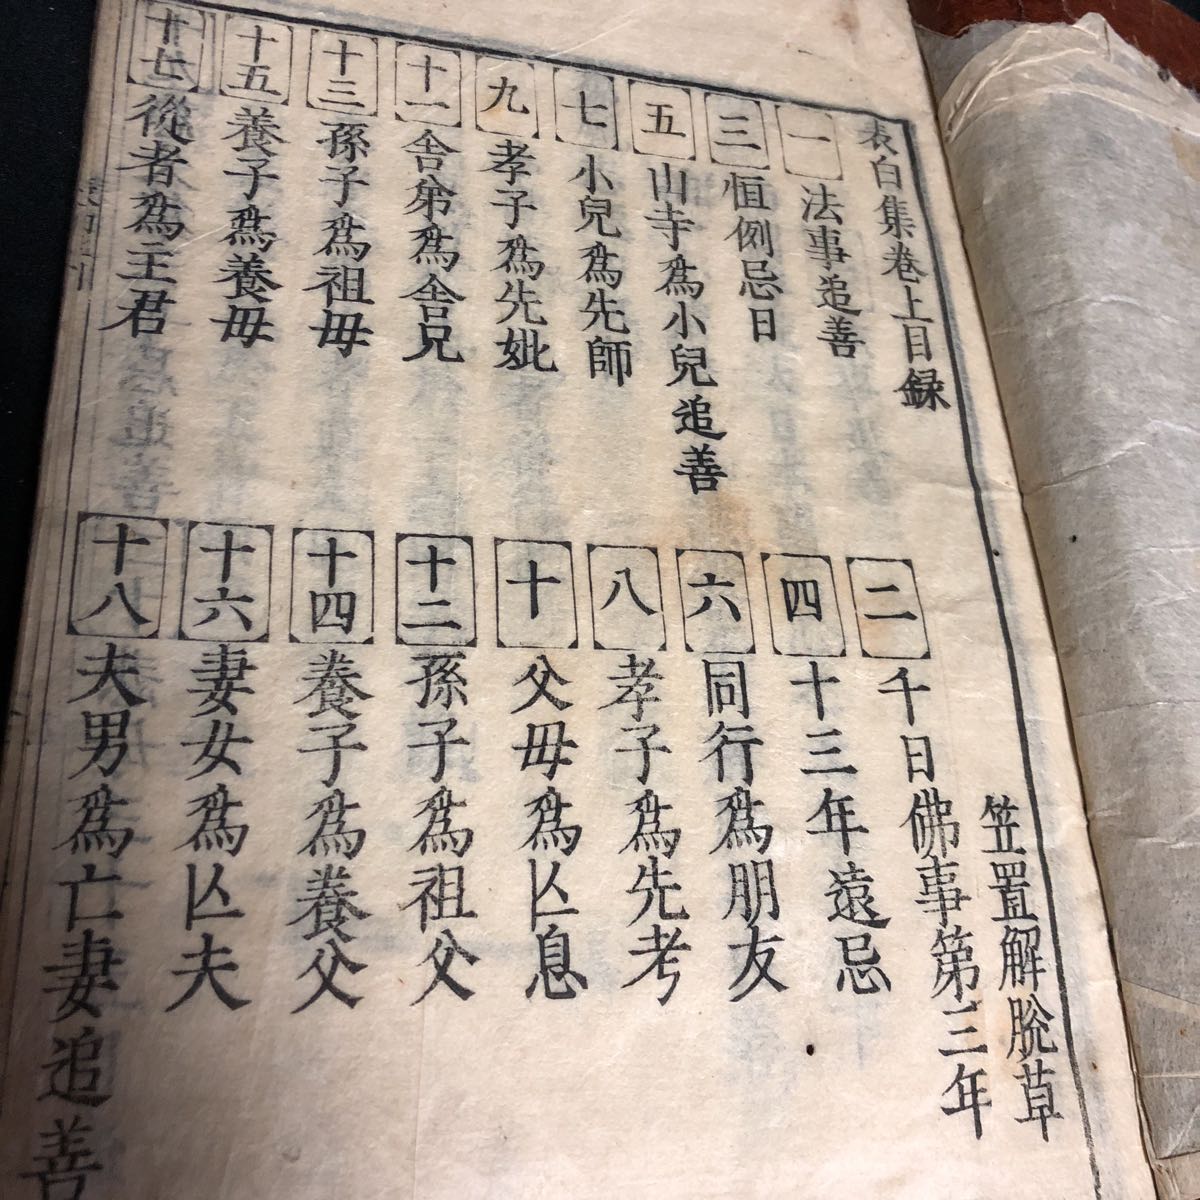 表白集巻上目録
笠置解脱草
一 法事追善
二 千日佛事第三年
三 恒例忌日
四 十三年遠忌
五 山寺為小兒追善
六 同行為朋友
七 小兒為先師
八 孝子為先考
九 孝子為先妣
十 父母為亾息
十一 舎弟為舎兄
十二 孫子為祖父
十三 孫子為祖母
十四 養子為養父
十五 養子為養母
十六 妻女為亾夫
十七 從者為主君
十八 夫男為亡妻追善